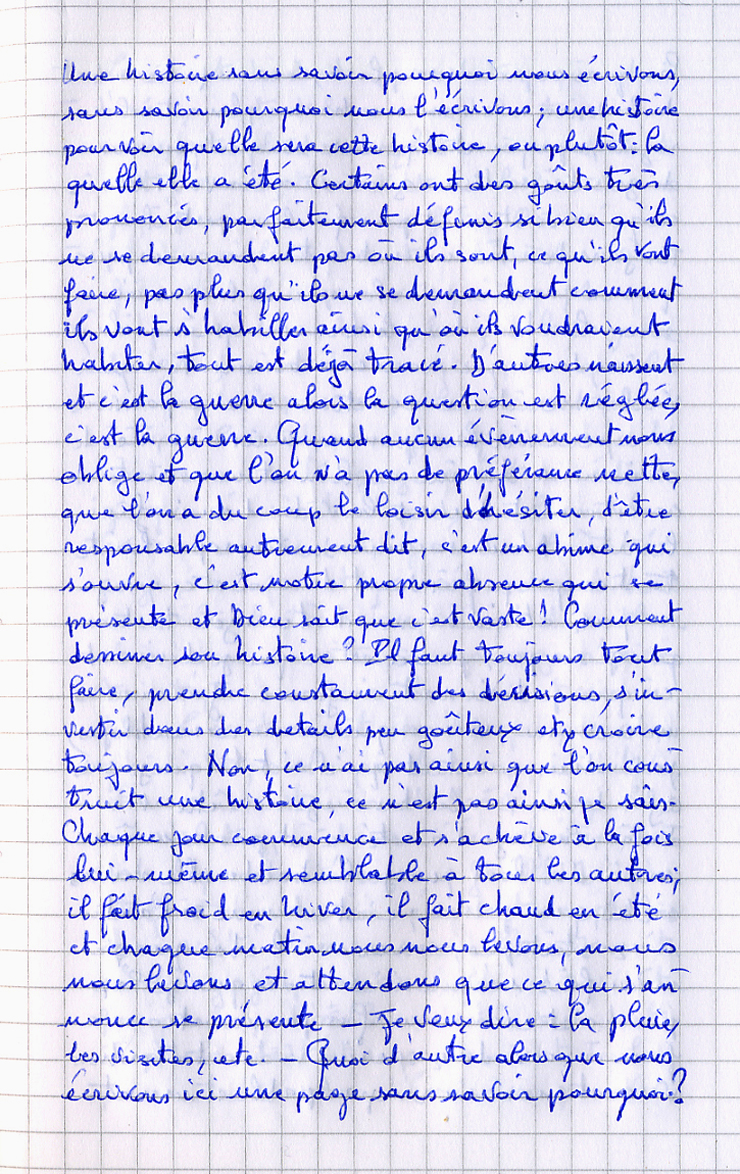 Une histoire sans savoir pourquoi nous écrivons,
sans savoir pourquoi nous l'écrivons ; une histoire
pour voir quelle sera cette histoire, ou plutôt : la
quelle elle a été. Certains ont des goûts très
prononcés, parfaitement définis si bien qu'ils
ne se demandent pas où ils sont, ce qu'ils vont
faire, pas plus qu'ils ne se demandent comment
ils vont s'habiller ainsi qu'où ils voudraient
habiter, tout est déjà tracé. D'autres naissent
et c'est la guerre alors la question est réglée,
c'est la guerre. Quand aucun évènement nous
oblige et que l'on n'a pas de préférance nette,
que l'on a du coup le loisir d'hésiter, d'être
responsable autrement dit, c'est un abîme qui
s'ouvre, c'est notre propre absence qui se
présente et Dieu sait que c'est vaste ! Comment
dessiner son histoire ? Il faut toujours tout
faire, prendre constamment des décisions, s'in-
vestir dans des détails peu goûteux et y croire
toujours. Non, ce n'ai pas ainsi que l'on cons
truit une histoire, ce n'est pas ainsi je sais.
Chaque jour commence et s'achève à la fois
lui-même et semblable à tous les autres ;
il fait froid en hiver, il fait chaud en été
et chaque matin nous nous levons, nous
nous levons et attendons que ce qui s'an
nonce se présente – Je veux dire : la pluie,
les visites, etc. – Quoi d'autre alors que nous
écrivons ici une page sans savoir pourquoi ?